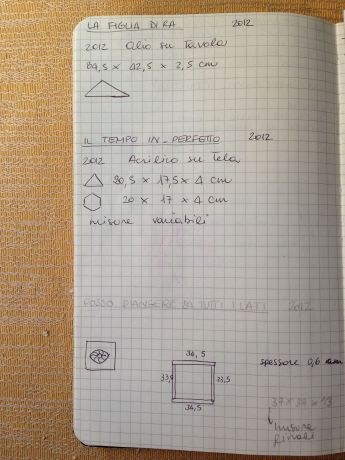 LA FIGLIA DI RA 2012
2012 Olio su Tavola
89,5 x 42,5 x 2,5 cm
IL TEMPO IN_PERFETTO 2012
2012 Acrilico su tela
20,5 x 17,5 x 4 cm
20 x 17 x 4 cm
misure variabili
POSSO PIANGERE DA TUTTI I LATI 2012
36,5
spessore 0,6
33,5
33,5
36,5
misure
finali